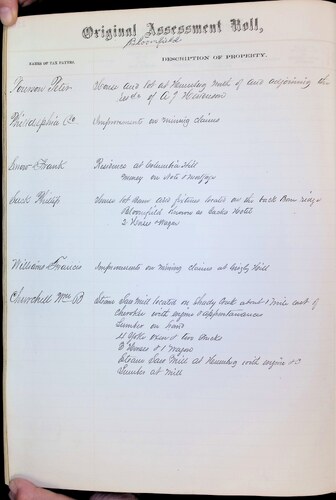 Original Assessment Roll,
Bloomfield
NAMES OF TAX PAYERS.
DESCRIPTION OF PROPERTY.
Peter
House and lot at Humbug north of and adjoining the
of A. J. Henderson
Philadelphia Co.
Improvements on mining claims
Snow Frank
Residence at Columbia Hill
Money on
Sacks Phillip
house lot barn and fixtures located on the back Bone ridge
Bloomfield Known as Sacks Hotel
2 Horses & Wagon
Williams Frances
Improvements on mining claims at Grizly Hill
Churchell Wm B
Steam Saw Mill located on Shady Creek about 1 Mile east of
Cherokee with engine & appurtenances
Lumber on hand
11 Yoke oxen & two trucks
2 Horses & 1 Wagon
Steam Saw Mill at Humbug with engine &C
Lumber at Mill